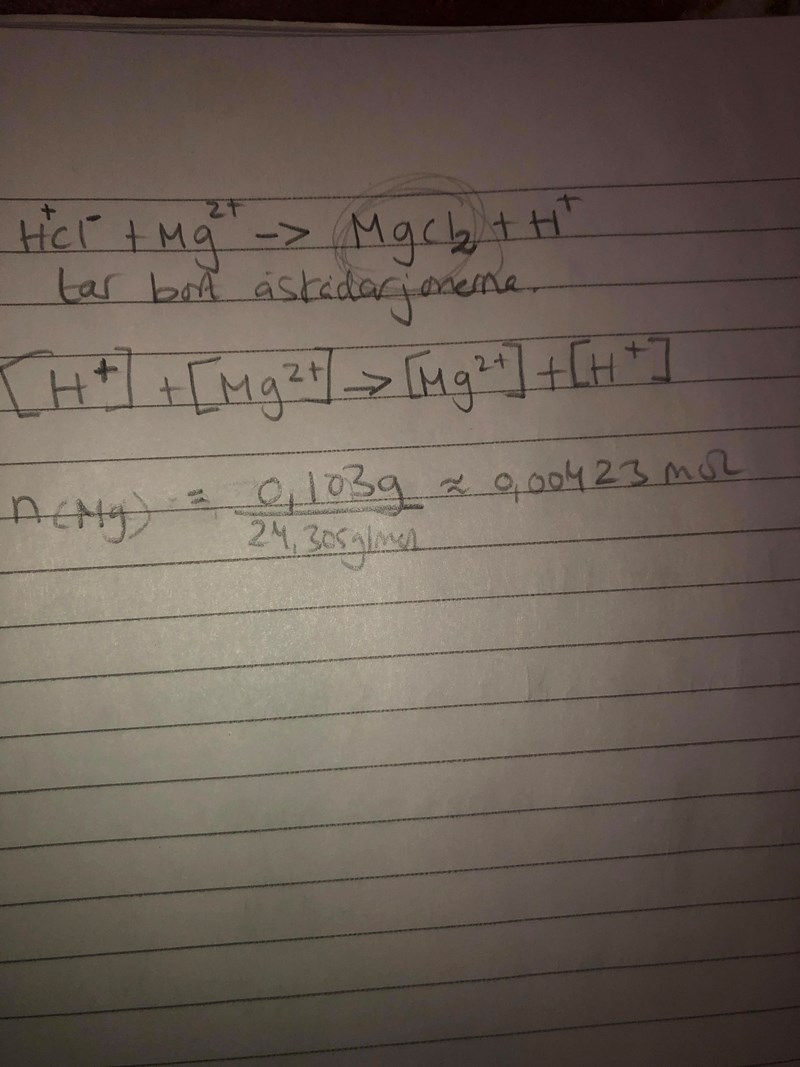 H⁺Cl⁻ + Mg²⁺ -> MgCl₂ + H⁺
tar bort åskådarjonerna.
[H⁺] + [Mg²⁺] -> [Mg²⁺] + [H⁺]
n(Mg) = 0,103g / 24,305g/mol ≈ 0,00423 mol